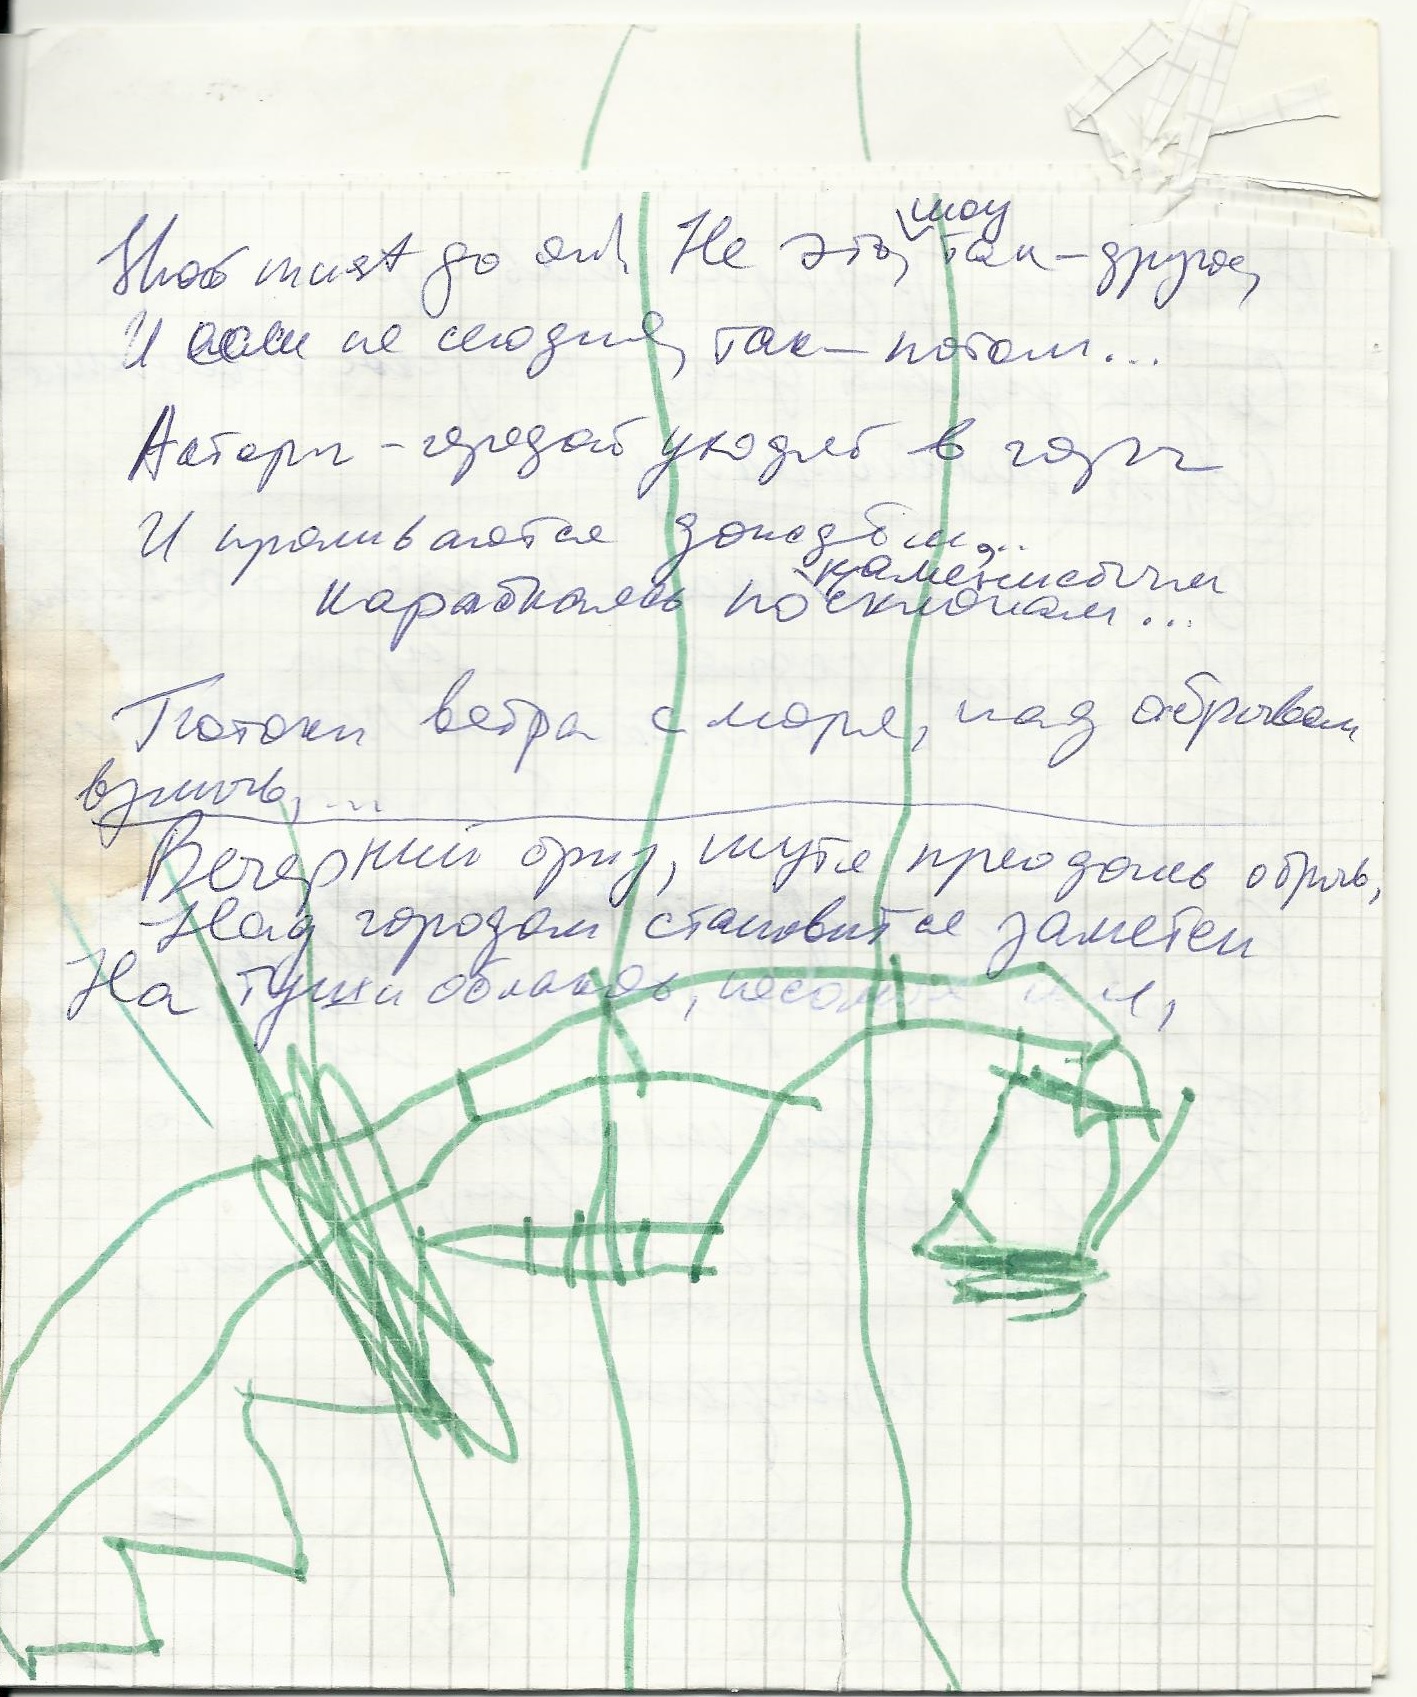 Show must go on! Не это шоу, так – другое,
И если не сегодня, так – потом...
Актеры – городат уходят в горы
И проливаются дождём...
Карабкаясь по каменистым склонам...
Потоки ветра с моря, над обрывом
взмыв, ...
Вечерний бриз, шутя преодолев обрыв,
Над городом становится заметен
На туши облаков,